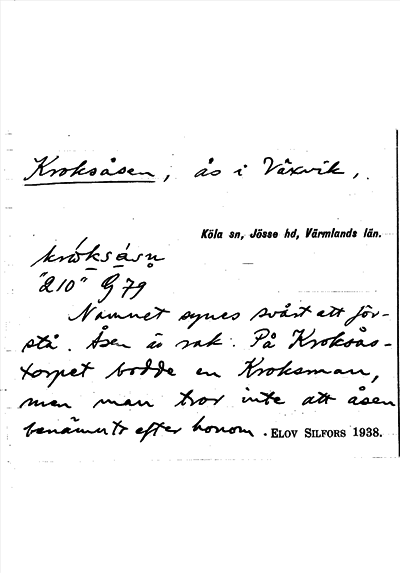 Kroksåsen, ås i Växvik,.
Köla sn, Jösse hd, Värmlands län.
króksásn
"210" G 79
Namnet synes svårt att för-
stå. Åsen är rak. På Kroksås-
torpet bodde en Kroksman,
men man tror inte att åsen
benämnts efter honom. ELOV SILFORS 1938.